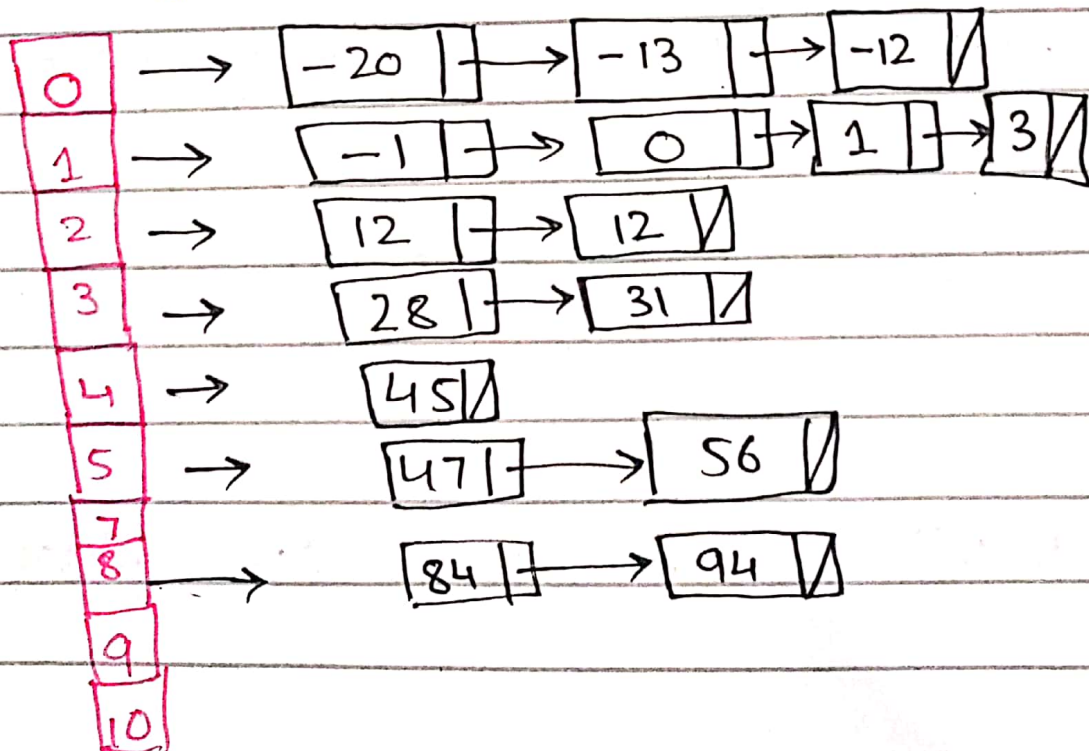 0 → -20 → -13 → -12
1 → -1 → 0 → 1 → 3
2 → 12 → 12
3 → 28 → 31
4 → 45
5 → 47 → 56
7
8 → 84 → 94
9
10